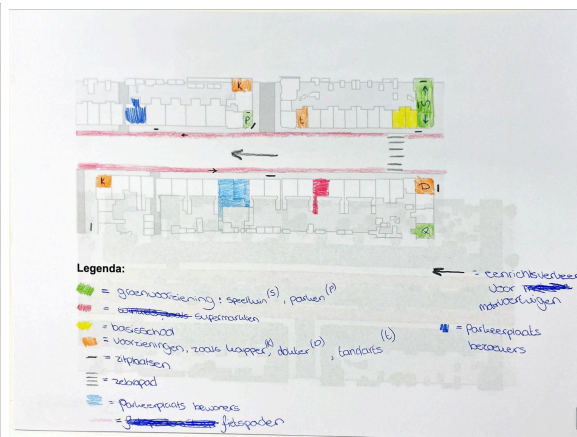 K
S
P
t
K
D
Legenda:
= groenvoorziening: speeltuin (S), parken (P)
= supermarkten
= basisschool
= voorzieningen, zoals kapper (K), dokter (D), tandarts (t)
= zitplaatsen
= zebrapad
= parkeerplaats bewoners
= fietspaden
= eenrichtsverkeer
voor
motorvoertuigen
= parkeerplaats
bezoekers